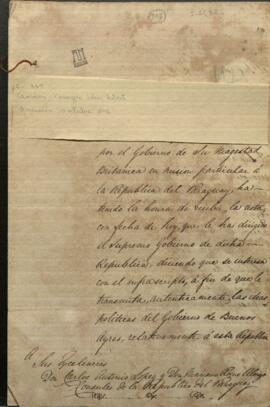 por el Gobierno de Su Magestad
Britanica en mision particular à
la Republica del Paraguay, ha
tenido la honra de recibir la nota
con fecha de hoy, que le has dirigido
el Supremo Gobierno de dicha
Republica, diciendo que se interesa
con el infrascripto, à fin de que le
transmita, autenticamente, las ideas
politicas del Gobierno de Buenos
Ayres, relativamente à esta Republica
A Sus Excelencias
Don Carlos Antonio Lopez y Don Mariano Roque Alonzo
Consules de la Republica del Paraguay